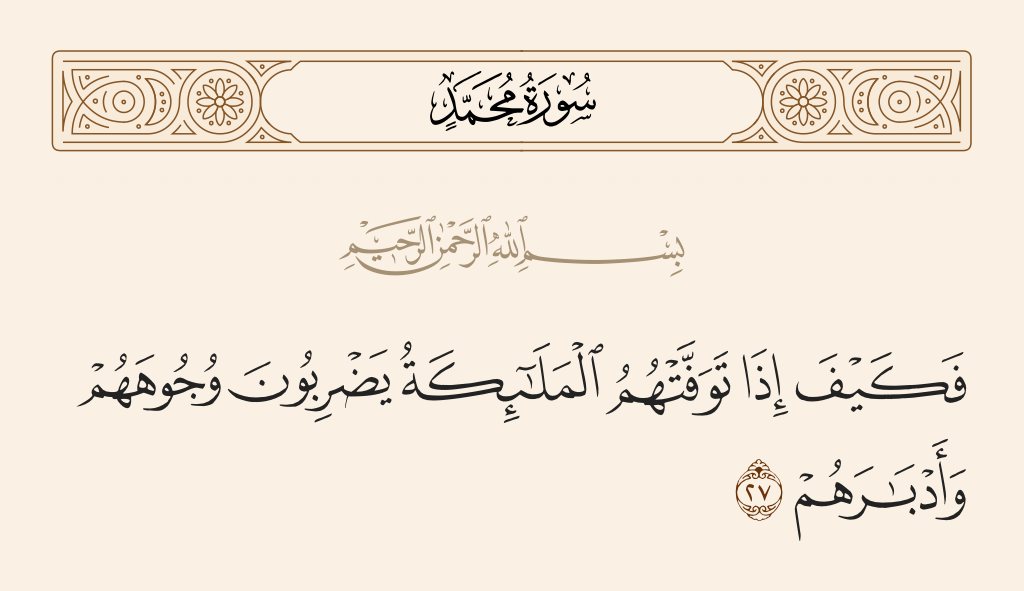 سُورَةُ مُحَمَّدٍ
بِسْمِ ٱللَّهِ ٱلرَّحْمَٰنِ ٱلرَّحِيمِ
فَكَيْفَ إِذَا تَوَفَّتْهُمُ ٱلْمَلَٰٓئِكَةُ يَضْرِبُونَ وُجُوهَهُمْ
وَأَدْبَٰرَهُمْ ٢٧